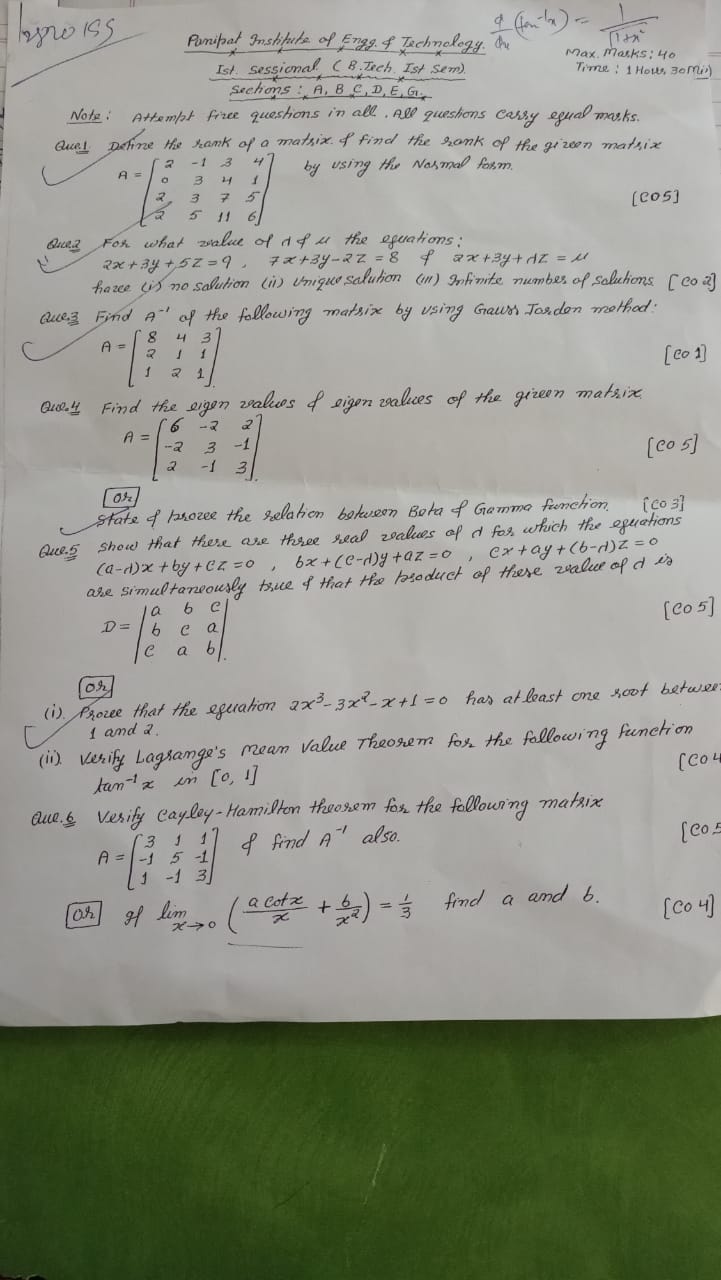 d/dx (tan⁻¹x) = 1/1+x²
Panipat Institute of Engg. & Technology.
Max. Marks: 40
Ist. Sessional (B.Tech. Ist Sem).
Time: 1 Hour 30 Min)
Sections: A, B, C, D, E, G.
Note: Attempt five questions in all. All questions carry equal marks.
Que.1 Define the rank of a matrix & find the rank of the given matrix
A = [2 -1 3 4 by using the Normal form.
0 3 4 1
2 3 7 5
2 5 11 6] [CO5]
Que.2 For what value of λ & μ the equations:
2x+3y+5z=9, 7x+3y-2z=8 & 2x+3y+λz=μ
have (i) no solution (ii) Unique solution (iii) Infinite number of solutions [CO 2]
Que.3 Find A⁻¹ of the following matrix by using Gauss Jordon method:
A = [8 4 3
2 1 1
1 2 1] [CO 1]
Que.4 Find the eigen values & eigen values of the given matrix.
A = [6 -2 2
-2 3 -1
2 -1 3] [CO 5]
Or
State & prove the relation between Beta & Gamma function. [CO 3]
Que.5 Show that there are three real values of λ for which the equations
(a-λ)x+by+cz=0, bx+(c-λ)y+az=0, cx+ay+(b-λ)z=0
are simultaneously true & that the product of these value of λ is
D = |a b c
b c a
c a b|. [CO 5]
Or
(i). Prove that the equation 2x³-3x²-x+1=0 has at least one root between
1 and 2.
(ii). Verify Lagrange's mean Value Theorem for the following function
tan⁻¹x in [0, 1] [CO4
Que.6 Verify Cayley-Hamilton theorem for the following matrix
A = [3 1 1
-1 5 -1 & find A⁻¹ also.
1 -1 3] [CO5
Or If lim x→0 (a cotx/x + b/x²) = 1/3 find a and b. [CO 4]